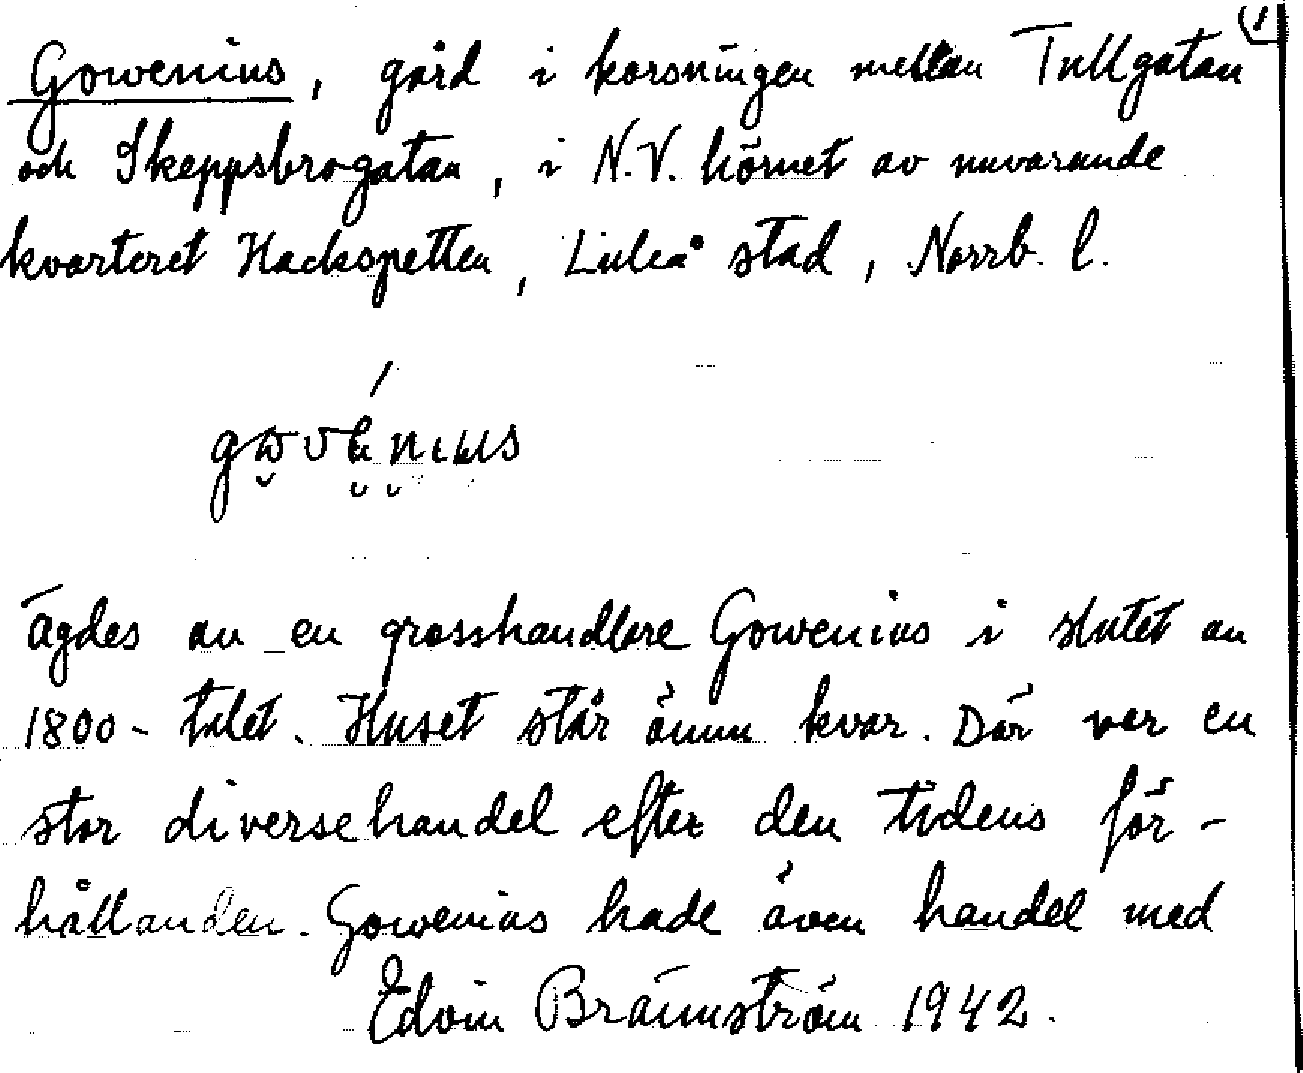 1
Gowenius, gård i korsningen mellan Tullgatan
och Skeppsbrogatan, i N.V. hörnet av nuvarande
kvarteret Hackspetten, Luleå stad, Norrb. l.
Ägdes av en grosshandlare Gowenius i slutet av
1800-talet. Huset står ännu kvar. Där var en
stor diversehandel efter den tidens för-
hållanden. Gowenius hade även handel med
Edvin Brännström 1942.